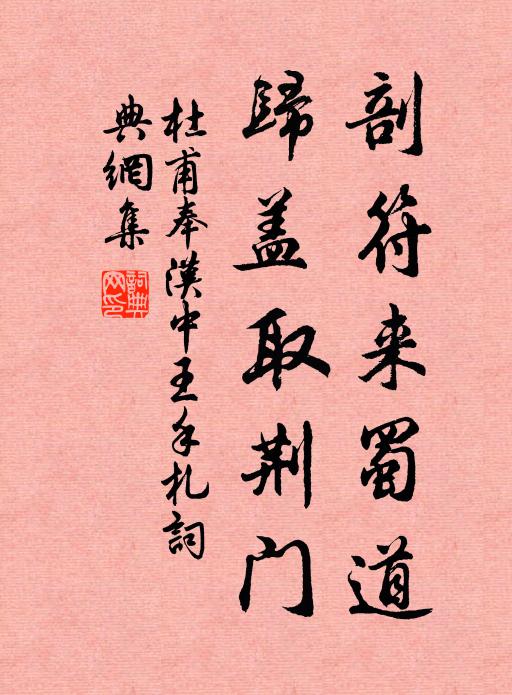 剖符来蜀道
歸盖取荆门
杜甫奉漢中王手札詞
典網集
詞典網印